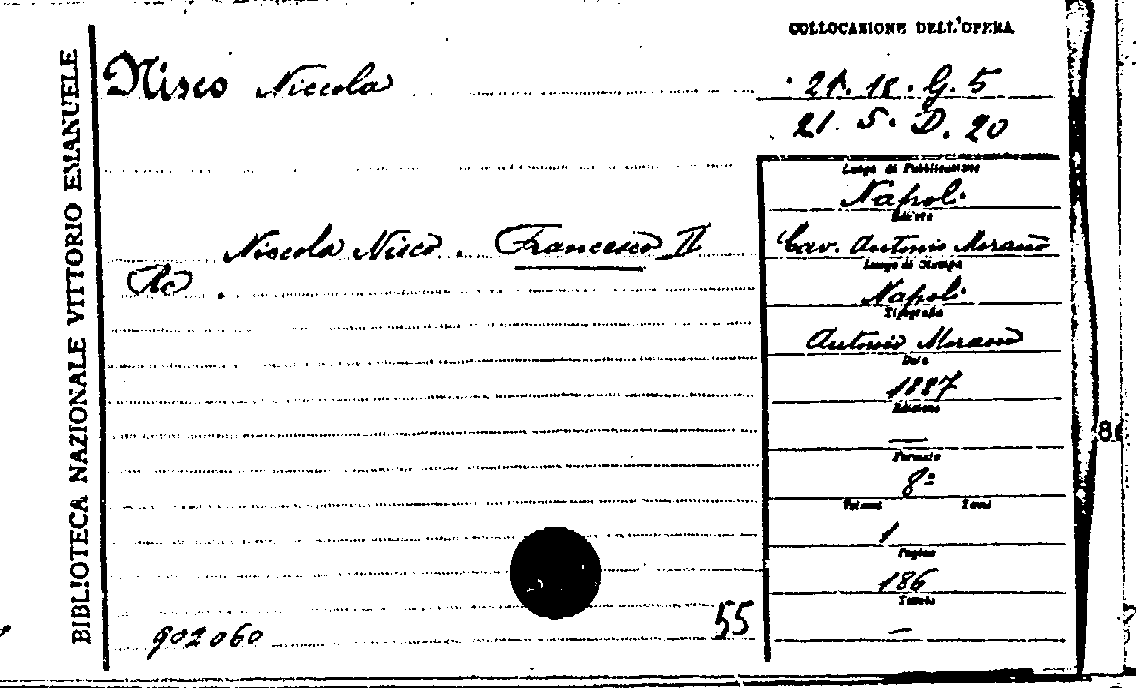 BIBLIOTECA NAZIONALE VITTORIO EMANUELE
COLLOCAZIONE DELL'OPERA
Nisco Niccola
21. 18. G. 5
21. 5. D. 20
Luogo di Pubblicazione
Napoli
Niccola Nisco. Francesco II
Cav. Antonio Morano
Luogo di Stampa
Re.
Napoli
Tipografia
Antonio Morano
Data
1887
Edizione
—
Formato
8º
Volumi Tomi
1
Pagine
186
—
902060
55